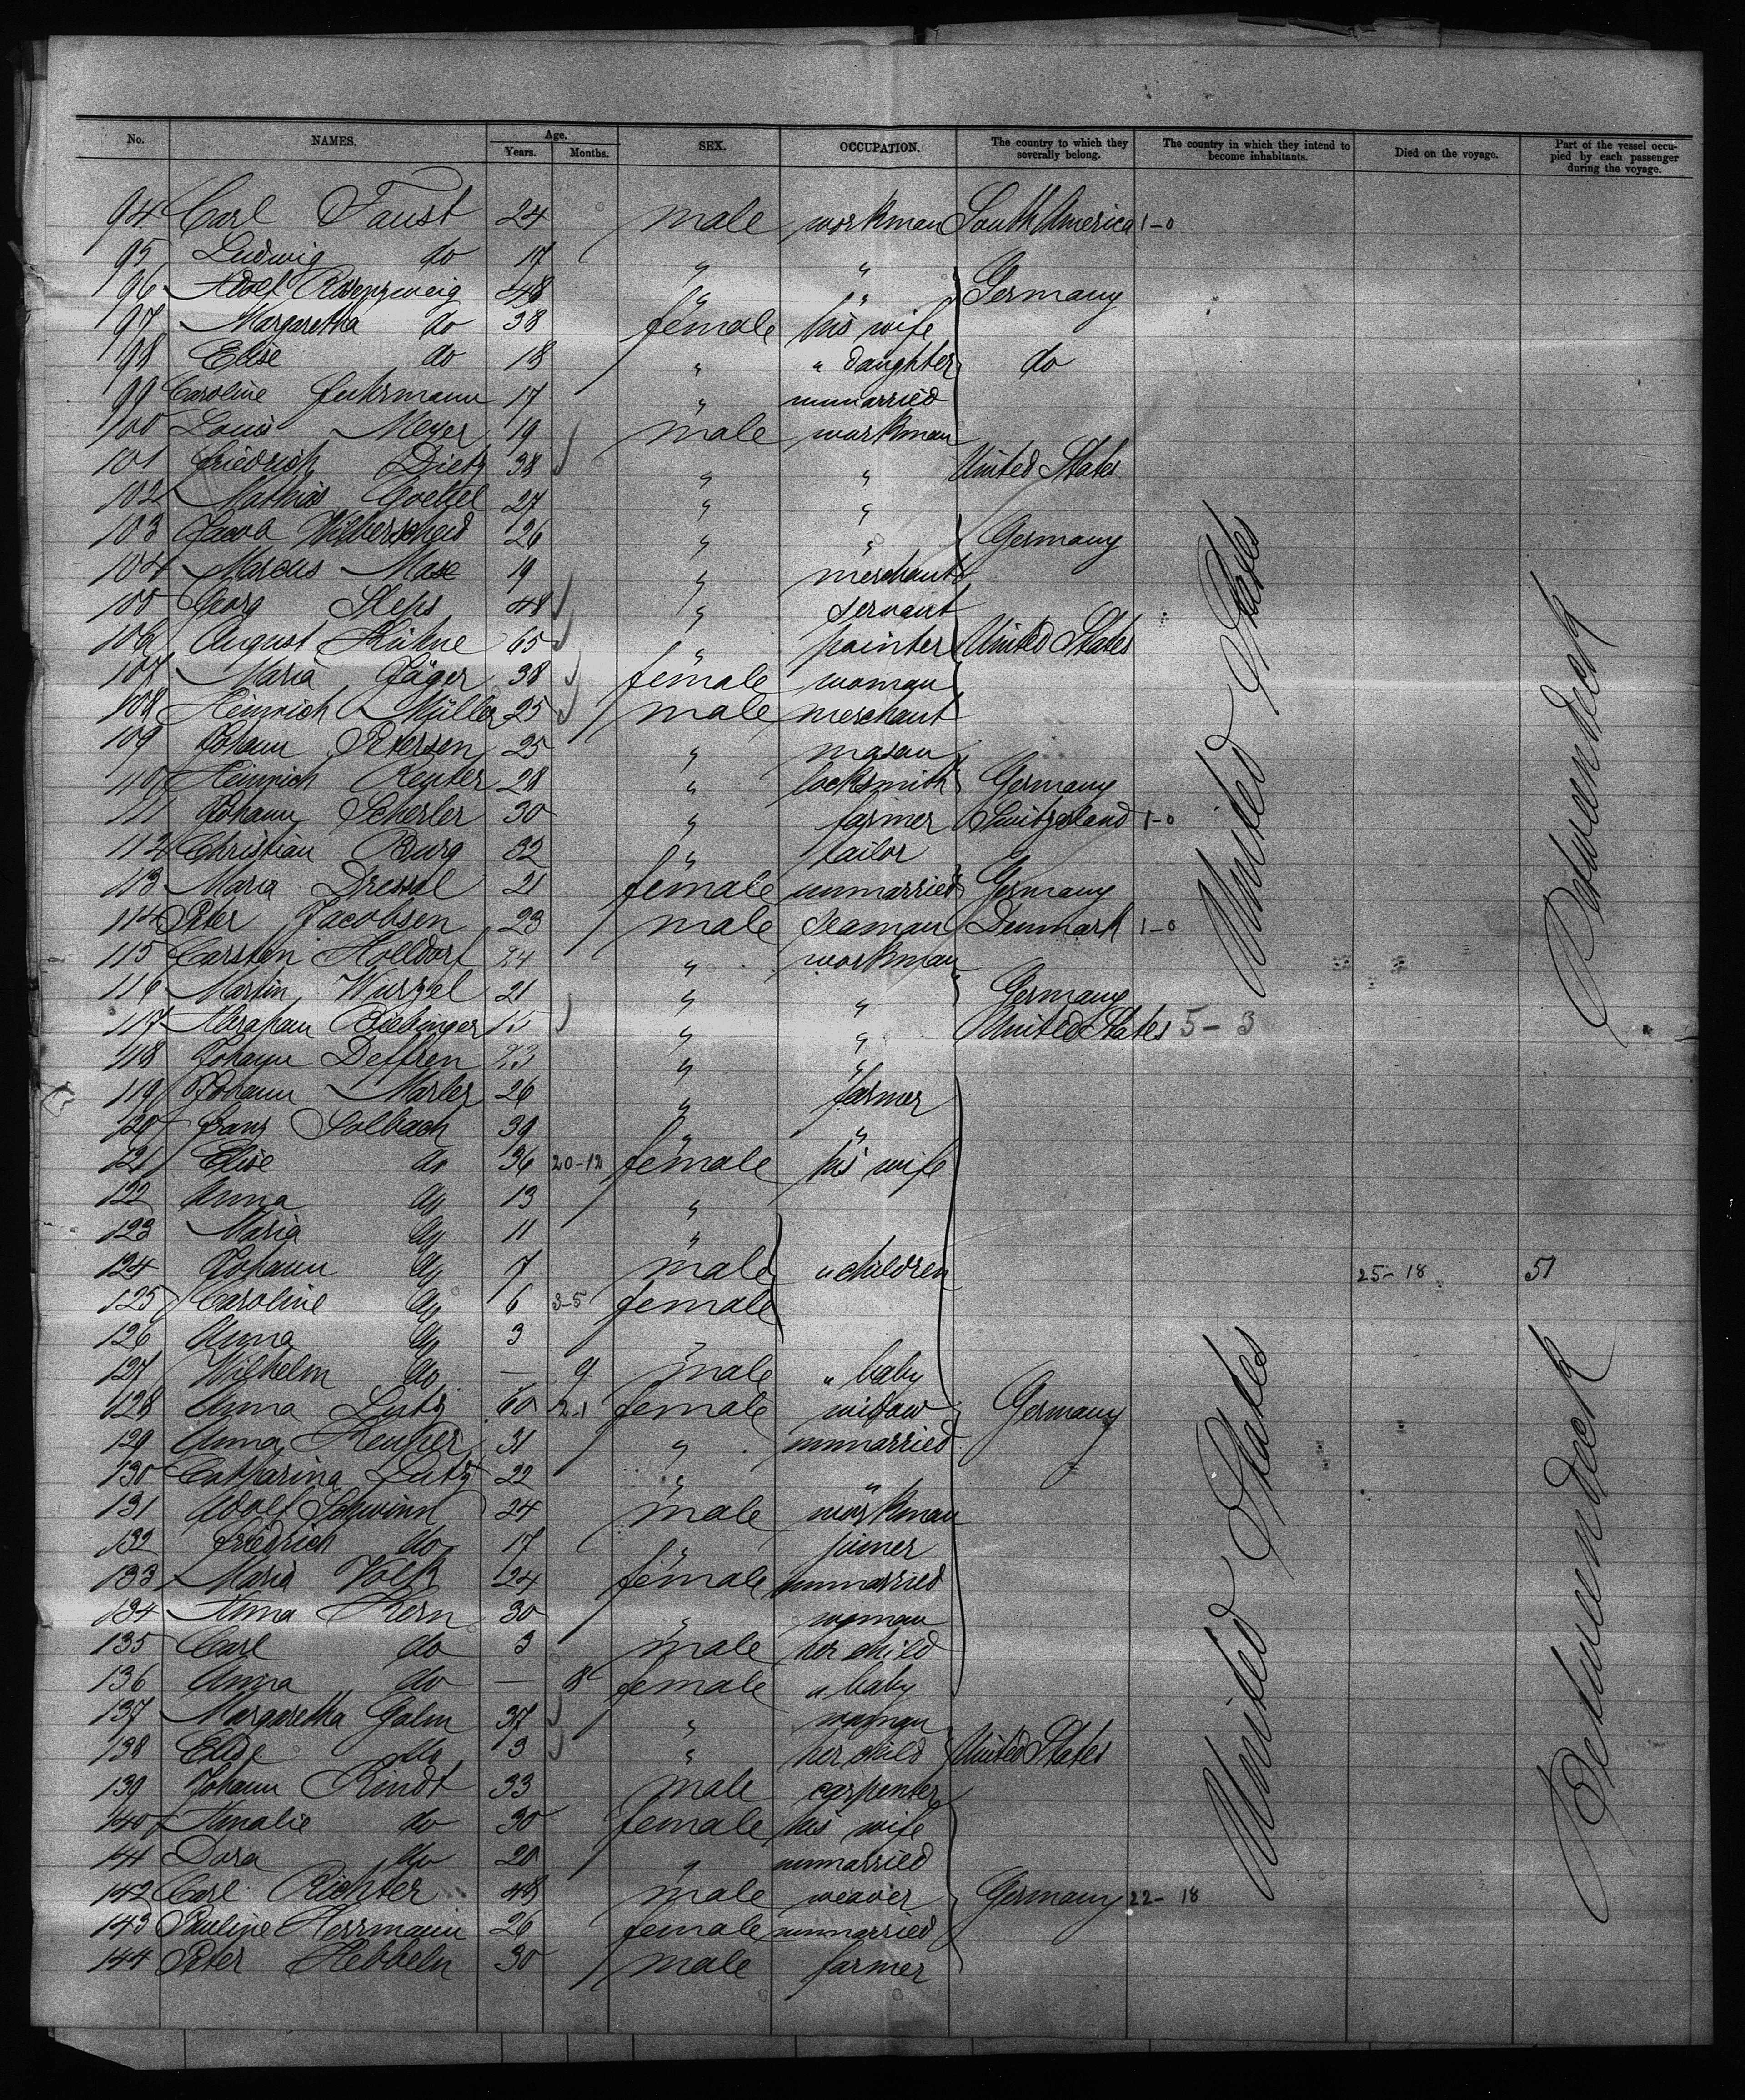 No. NAMES. Age. Years. Months. SEX. OCCUPATION. The country to which they severally belong. The country in which they intend to become inhabitants. Died on the voyage. Part of the vessel occupied by each passenger during the voyage.
94 Carl Faust 24 male workman South America 1-0
95 Ludwig do 17 " "
96 Adolf Rosenzweig 48 " " Germany
97 Margaretha do 38 female his wife
98 Elise do 18 " " daughter do
99 Caroline Fuhrmann 17 " unmarried
100 Louis Meyer 19 male workman
101 Friedrich Dietz 38 " " United States
102 Mathias Goettel 27 " "
103 Jacob Wilberscheid 26 " " Germany
104 Marcus Max 19 " merchant
105 Georg Steps 48 " servant
106 August Kühne 65 " painter United States
107 Maria Jäger 38 female woman
108 Heinrich Müller 25 male merchant
109 Johann Petersen 25 " mason
110 Heinrich Reuter 28 " locksmith Germany
111 Johann Scherler 30 " farmer Switzerland 1-0
112 Christian Burg 32 " tailor
113 Maria Dressel 21 female unmarried Germany
114 Peter Jacobsen 23 male seaman Denmark 1-0
115 Carsten Holldorf 24 " workman
116 Martin Wurzel 21 " " Germany
117 Abraham 15 " " United States 5-3
118 Johann Deffren 23 " "
119 Johann Marler 26 " farmer
120 Franz Solbach 39 " "
121 Elise do 36 20-12 female his wife
122 Anna do 13 "
123 Maria do 11 "
124 Johann do 7 male " children 25-18 51
125 Caroline do 6 3-5 female
126 Anna do 3 "
127 Wilhelm do — 9 male " baby
128 Anna Lutz 60 2-1 female widow Germany
129 Anna 31 " unmarried
130 Catharina Lutz 22 " "
131 Adolf Schwinn 24 male workman
132 Friedrich do 17 " joiner
133 Maria Volk 24 female unmarried
134 Anna Kern 30 " woman
135 Carl do 3 male her child
136 Anna do — 8 female " baby
137 Margaretha Galm 37 " woman
138 Elise do 3 " her child United States
139 Johann Rindt 33 male carpenter
140 Amalie do 30 female his wife
141 Dora do 20 " unmarried
142 Carl Richter 48 male weaver Germany 22-18
143 Pauline Herrmann 26 female unmarried
144 Peter Hebbeln 30 male farmer
United States
Betweendeck
United States
Betweendeck